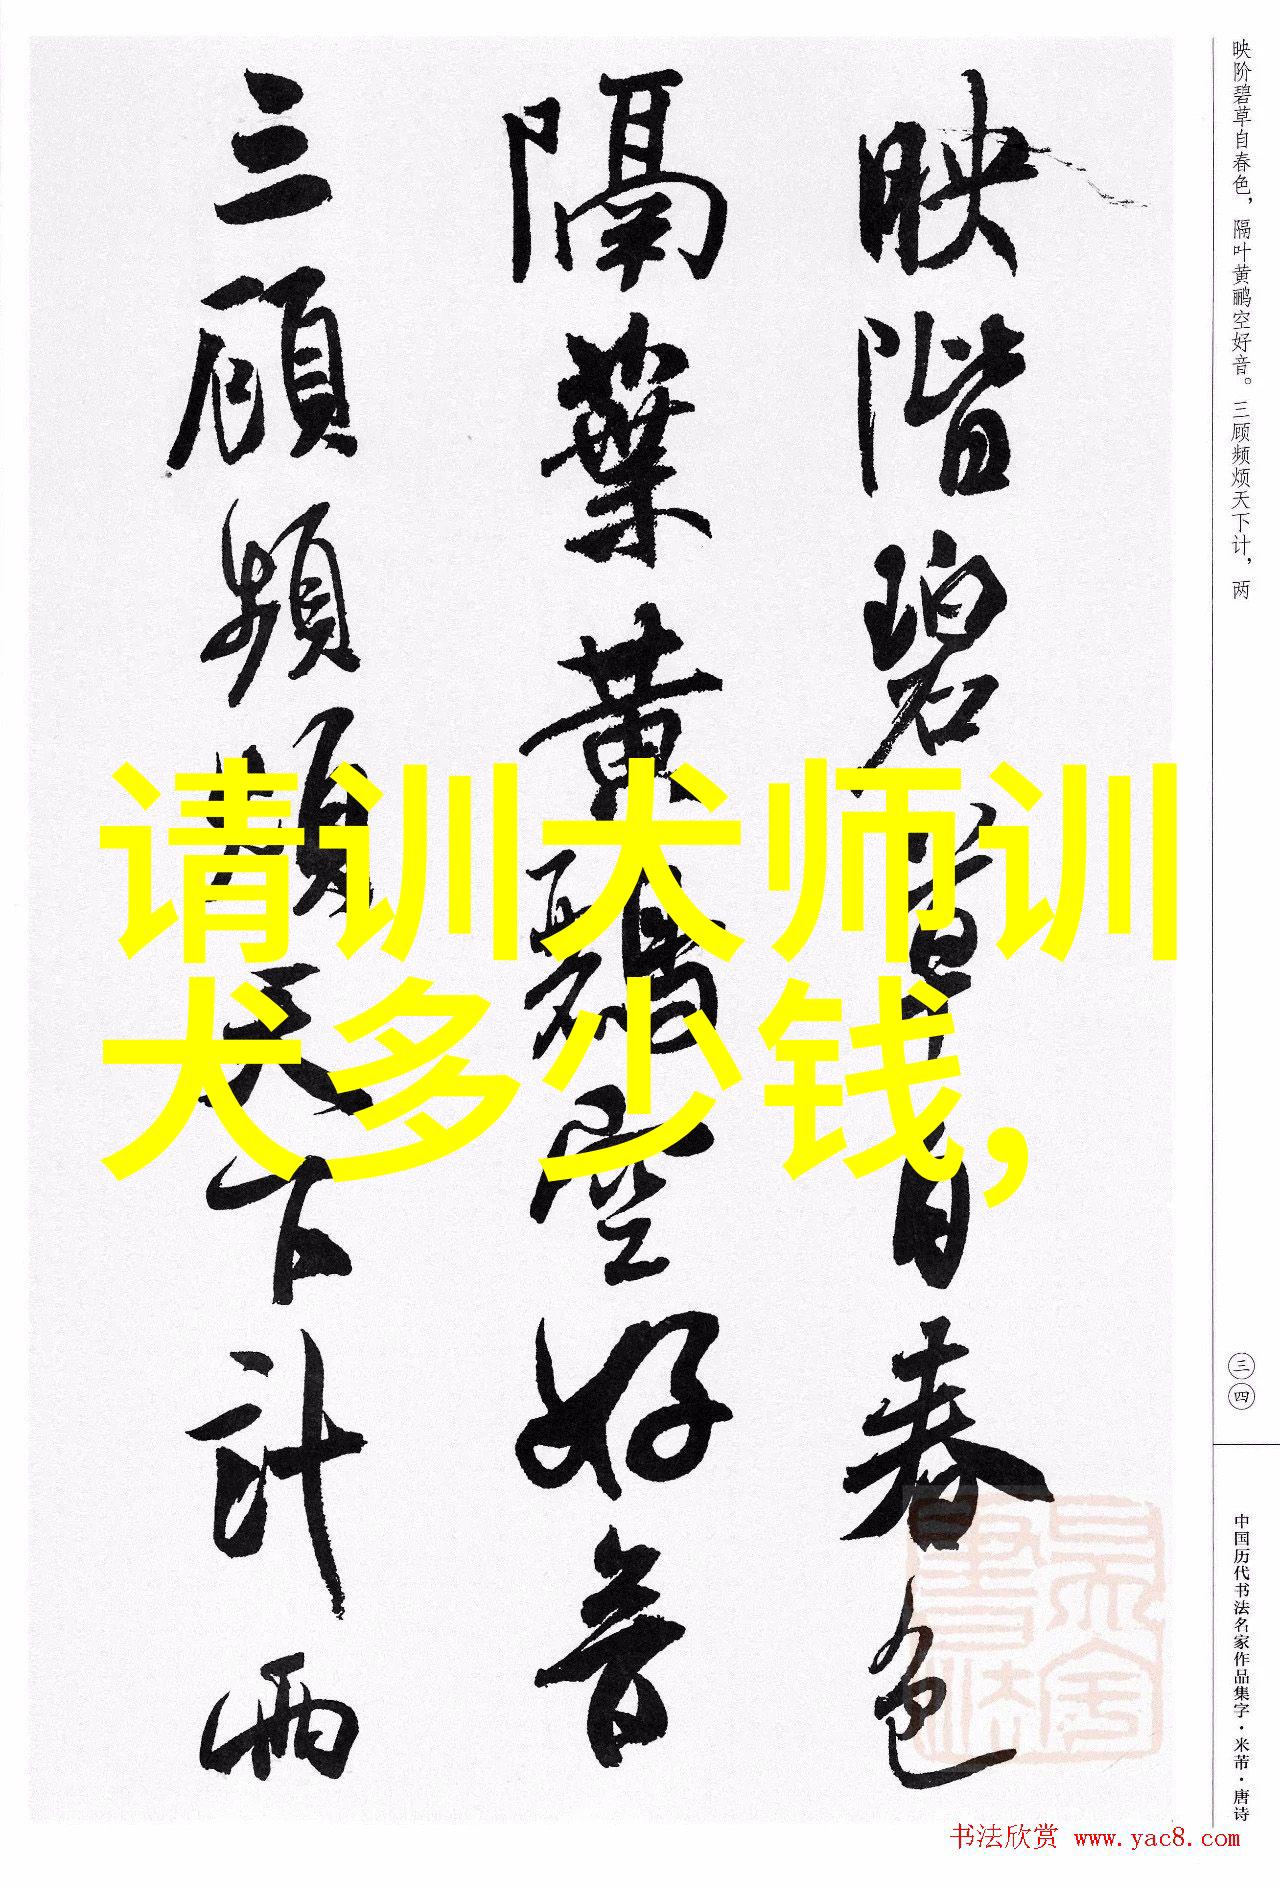 映階碧草自春色
隔葉黃鸝空好音
三顧頻煩天下計兩
请训犬师训
犬多少钱，
映阶碧草自春色，隔叶黄鹂空好音。三顾频烦天下计，两
三四
中国历代书法名家作品集字·米芾·唐诗
书法欣赏 www.yac8.com